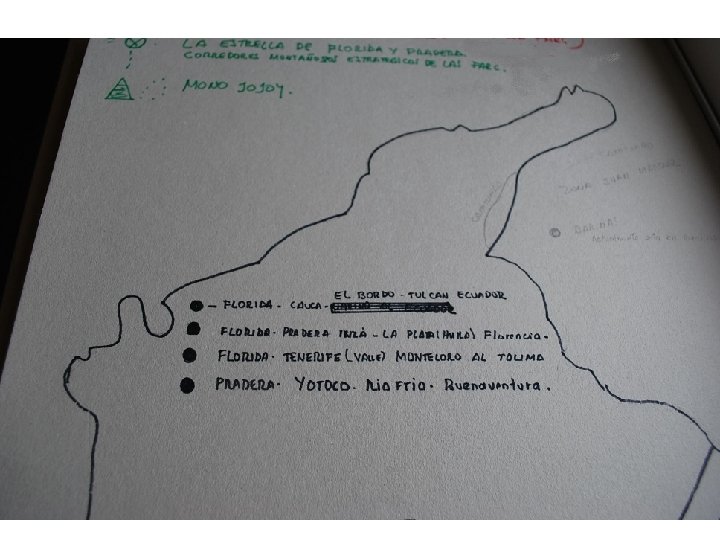 LA ESTRELLA DE FLORIDA Y PRADERA
CORREDORES MONTAÑOSOS ESTRATEGICOS DE LAS FARC.
MONO JOJOY.
EL BORDO - TULCAN ECUADOR
- FLORIDA - CAUCA -
FLORIDA - PRADERA - LA PLATA (HUILA) Florencia.
FLORIDA - TENERIFE (VALLE) MONTELORO AL TOLIMA
PRADERA - YOTOCO - Rio Frio - Buenaventura.
ZONA